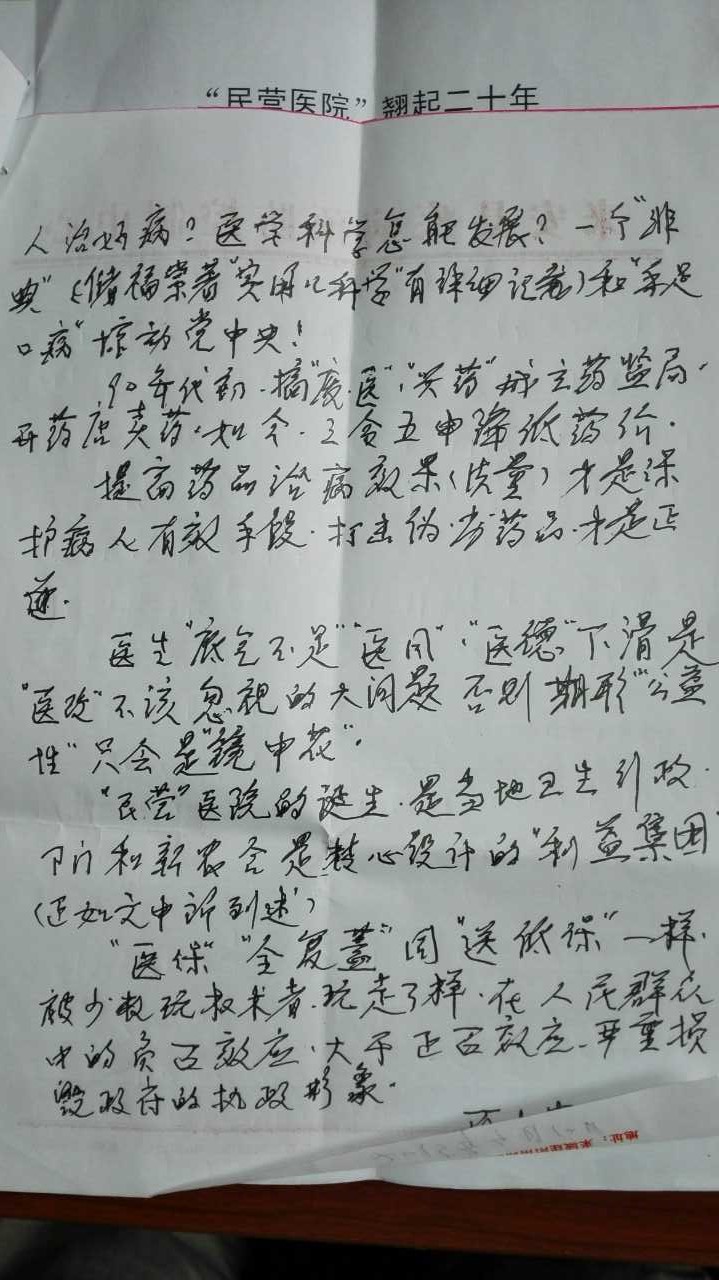 “民营医院”翘起二十年
人治好病？医学科学怎能发展？一个"非
典"（储福棠著"实用儿科学"有详细记载）和"手足
口病"惊动党中央！
90年代初.搞"废医"."兴药"成立药监局.
开药店卖药.如今.三令五申降低药价.
提高药品治病效果（质量）才是保
护病人有效手段.打击伪.劣药品.才是正
道.
医生"底气不足""医风"."医德"下滑是
"医改"不该忽视的大问题 否则 期形"公益
性"只会是"镜中花".
"民营"医院的诞生.是当地卫生行政.
部门和新农合是精心设计的"利益集团"
（正如文中所列述）
"医保""全复盖"同"送低保"一样.
被少数玩权术者.玩走了样.在人民群众
中的负面效应.大于正面效应.严重损
毁政府的执政形象.
地址：